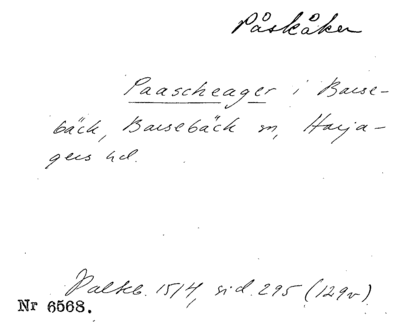 Påskåker
Paascheager i Barse-
bäck, Barsebäck sn, Harja-
gers hd.
Palteb. 1514, sid. 295 (129v)
Nr 6568.